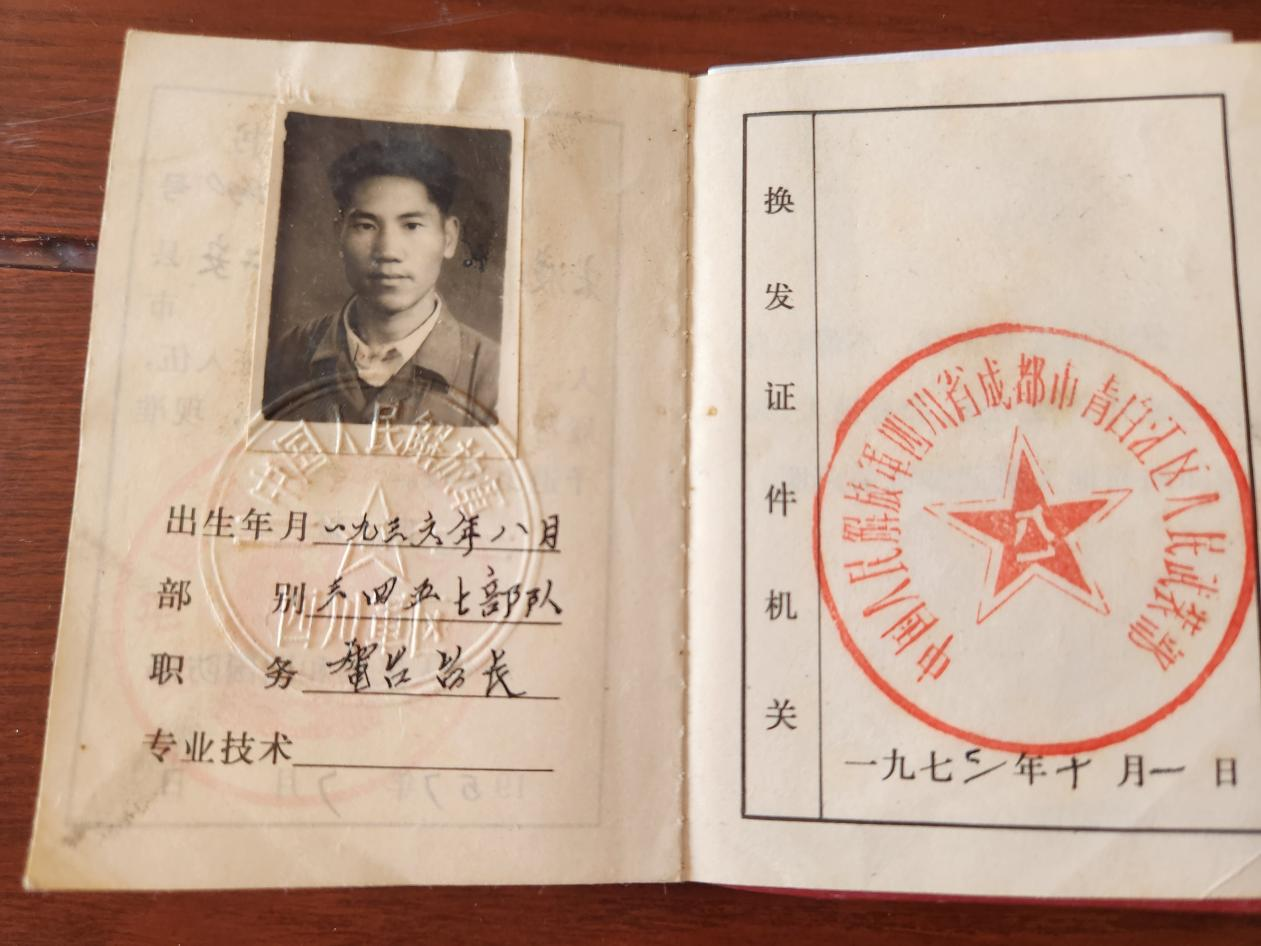 中国人民解放军
四川省军区
出生年月 一九三六年八月
部别 三四五七部队
职务 台长
专业技术
换发证件机关
中国人民解放军四川省成都市青白江区人民武装部
一九七五年十月一日